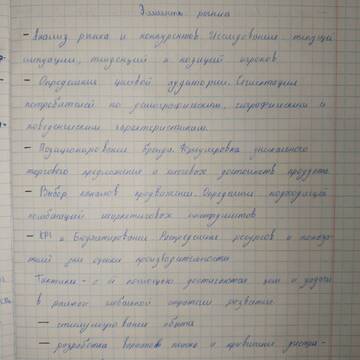 рынка
— Анализ рынка и конкурентов. Исследование текущей
ситуации, тенденций и позиций игроков
— Определение целевой аудитории. Сегментация
потребителей по демографическим, географическим и
поведенческим характеристикам.
— Позиционирование бренда. Формулировка уникального
торгового предложения и ключевых достоинств продукта
— Выбор каналов продвижения. Определение подходящей
комбинации маркетинговых инструментов
— KPI и Бюджетирование Распределение ресурсов и показа-
телей для оценки производительности
Тактика – с её помощью достигаются цели и задачи
в рамках глобальной стратегии развития
— стимулирование сбыта
— разработка